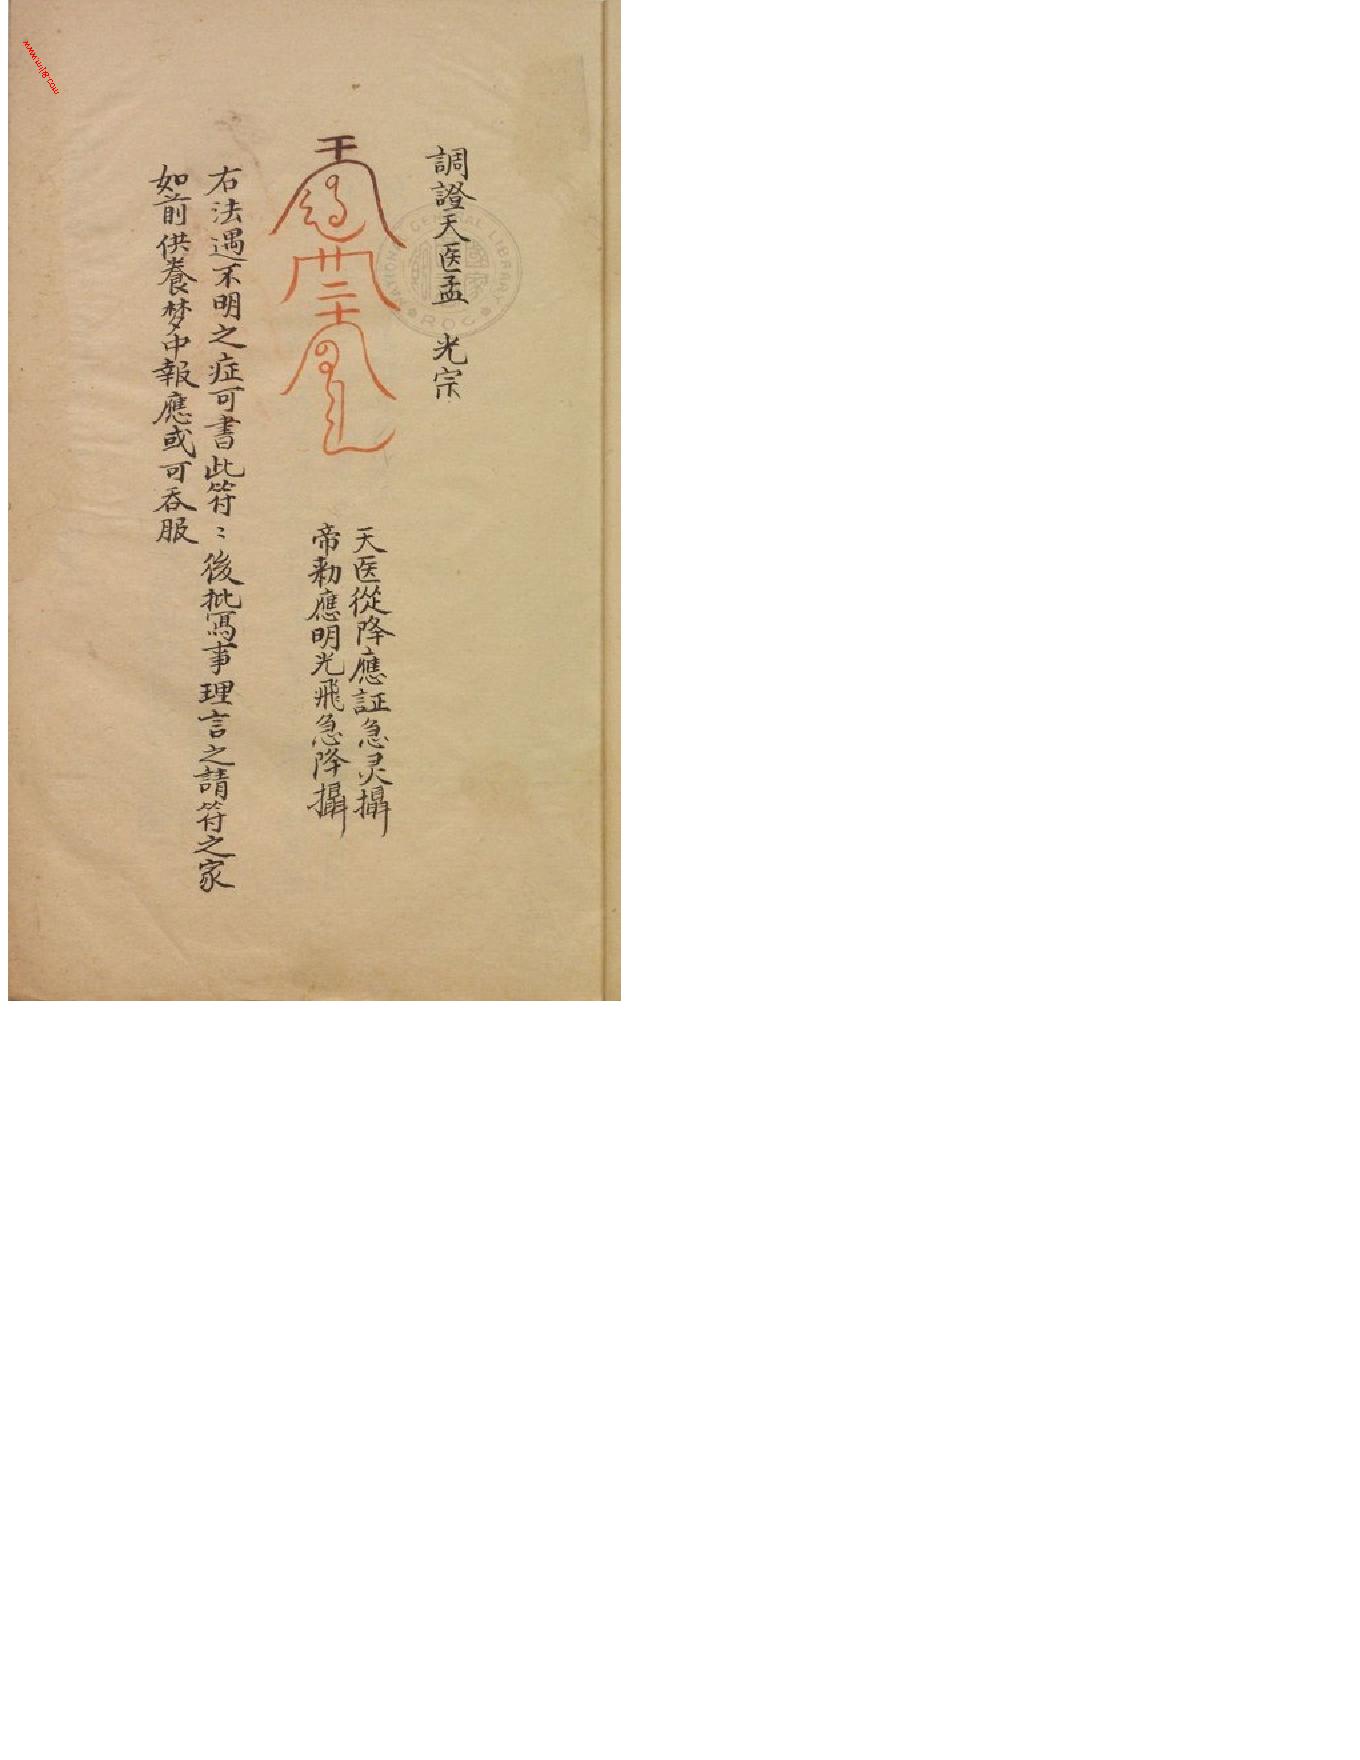 調證天医孟 光宗
天医從降應証急灵攝
帝勅應明光飛急降攝
右法遇不明之症可書此符:後批寫事理言之請符之家
如前供養梦中報應或可吞服
NATIONAL GENERAL LIBRARY
ROC